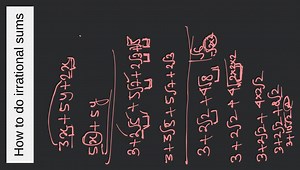 How to do irrational sums
3x+5y+2x
5x+5y
3+2√5+5√7+2√3+√5
3+3√5+5√7+2√3
3+2√2+4√8
3+2√2+4√2×2×2
3+2√2+4×2√2
3+2√2+8√2
3+10√2